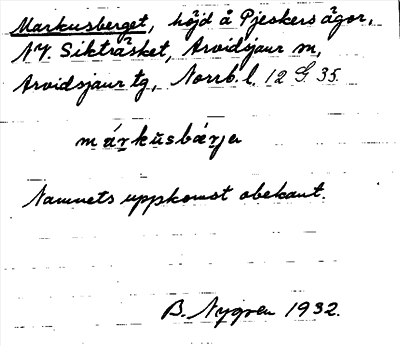 Markusberget, höjd å Pjeskers ägor,
NV. Sikträsket, Arvidsjaur m,
Arvidsjaur tg, Norrb. l. 12 G. 35.
márkŭsbærja
Namnets uppkomst obekant.
B. Nygren 1932.